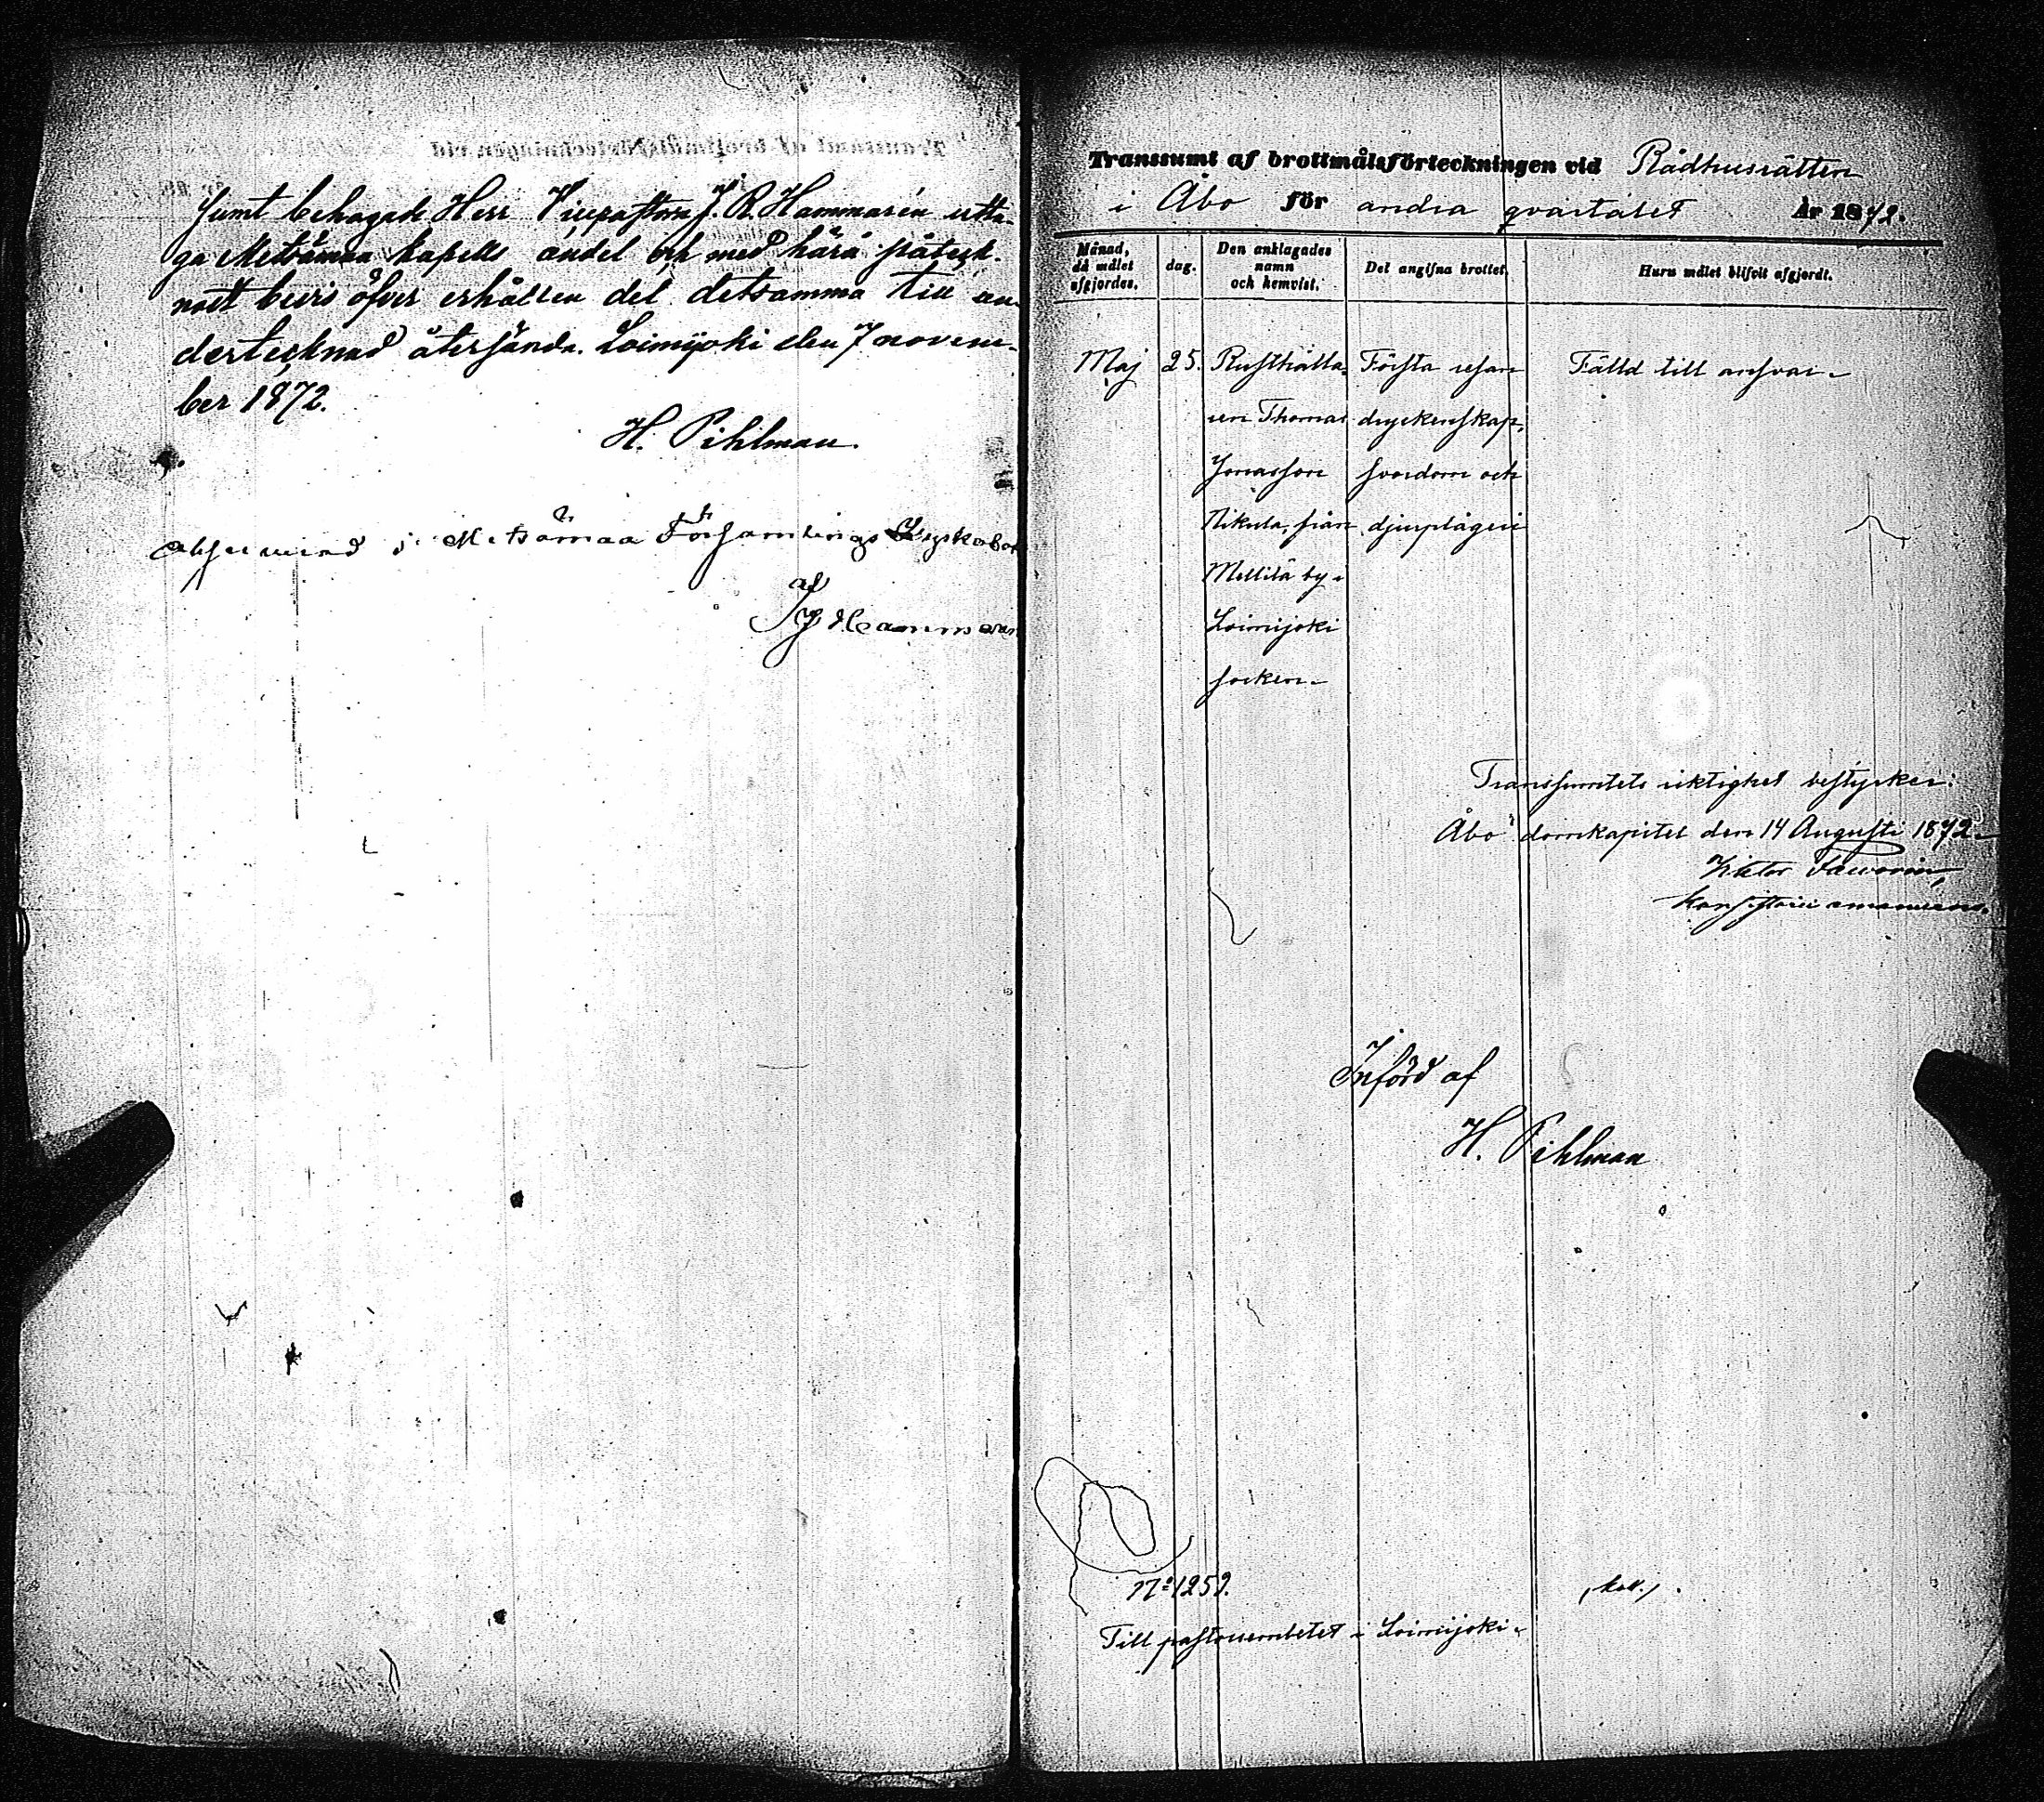 sumt behagade Herr Vicepastorn J. R. Hammarén utta-
ga Metsämaa kapells andel och med härå påteck-
nadt bevis öfver erhållen del detsamma till un-
dertecknad återsända. Loimijoki den 7 novem-
ber 1872.
H. Pihlman.
i Metsämaa Församlings Kyrkobok
af
Hammarén
Transsumt af brottmålsförteckningen vid Rådhusrätten
i Åbo för andra qvartalet År 1872.
Månad, då målet afgjordes. dag. Den anklagades namn och hemvist. Det angifna brottet. Huru målet blifvit afgjordt.
Maj 25. Rusthålla- Första resan Fälld till ansvar.
ren Thomas dryckenskap,
Jonasson svordom och
Nikula, från djurplågeri
Mellilä by i
Loimijoki
socken.
Transsumtets riktighet bestyrker:
Åbo domkapitel den 14 Augusti 1872.
Viktor
Konsistorii amanuens.
Införd af
H. Pihlman
No 1259.
Till pastorsembetet i Loimijoki.